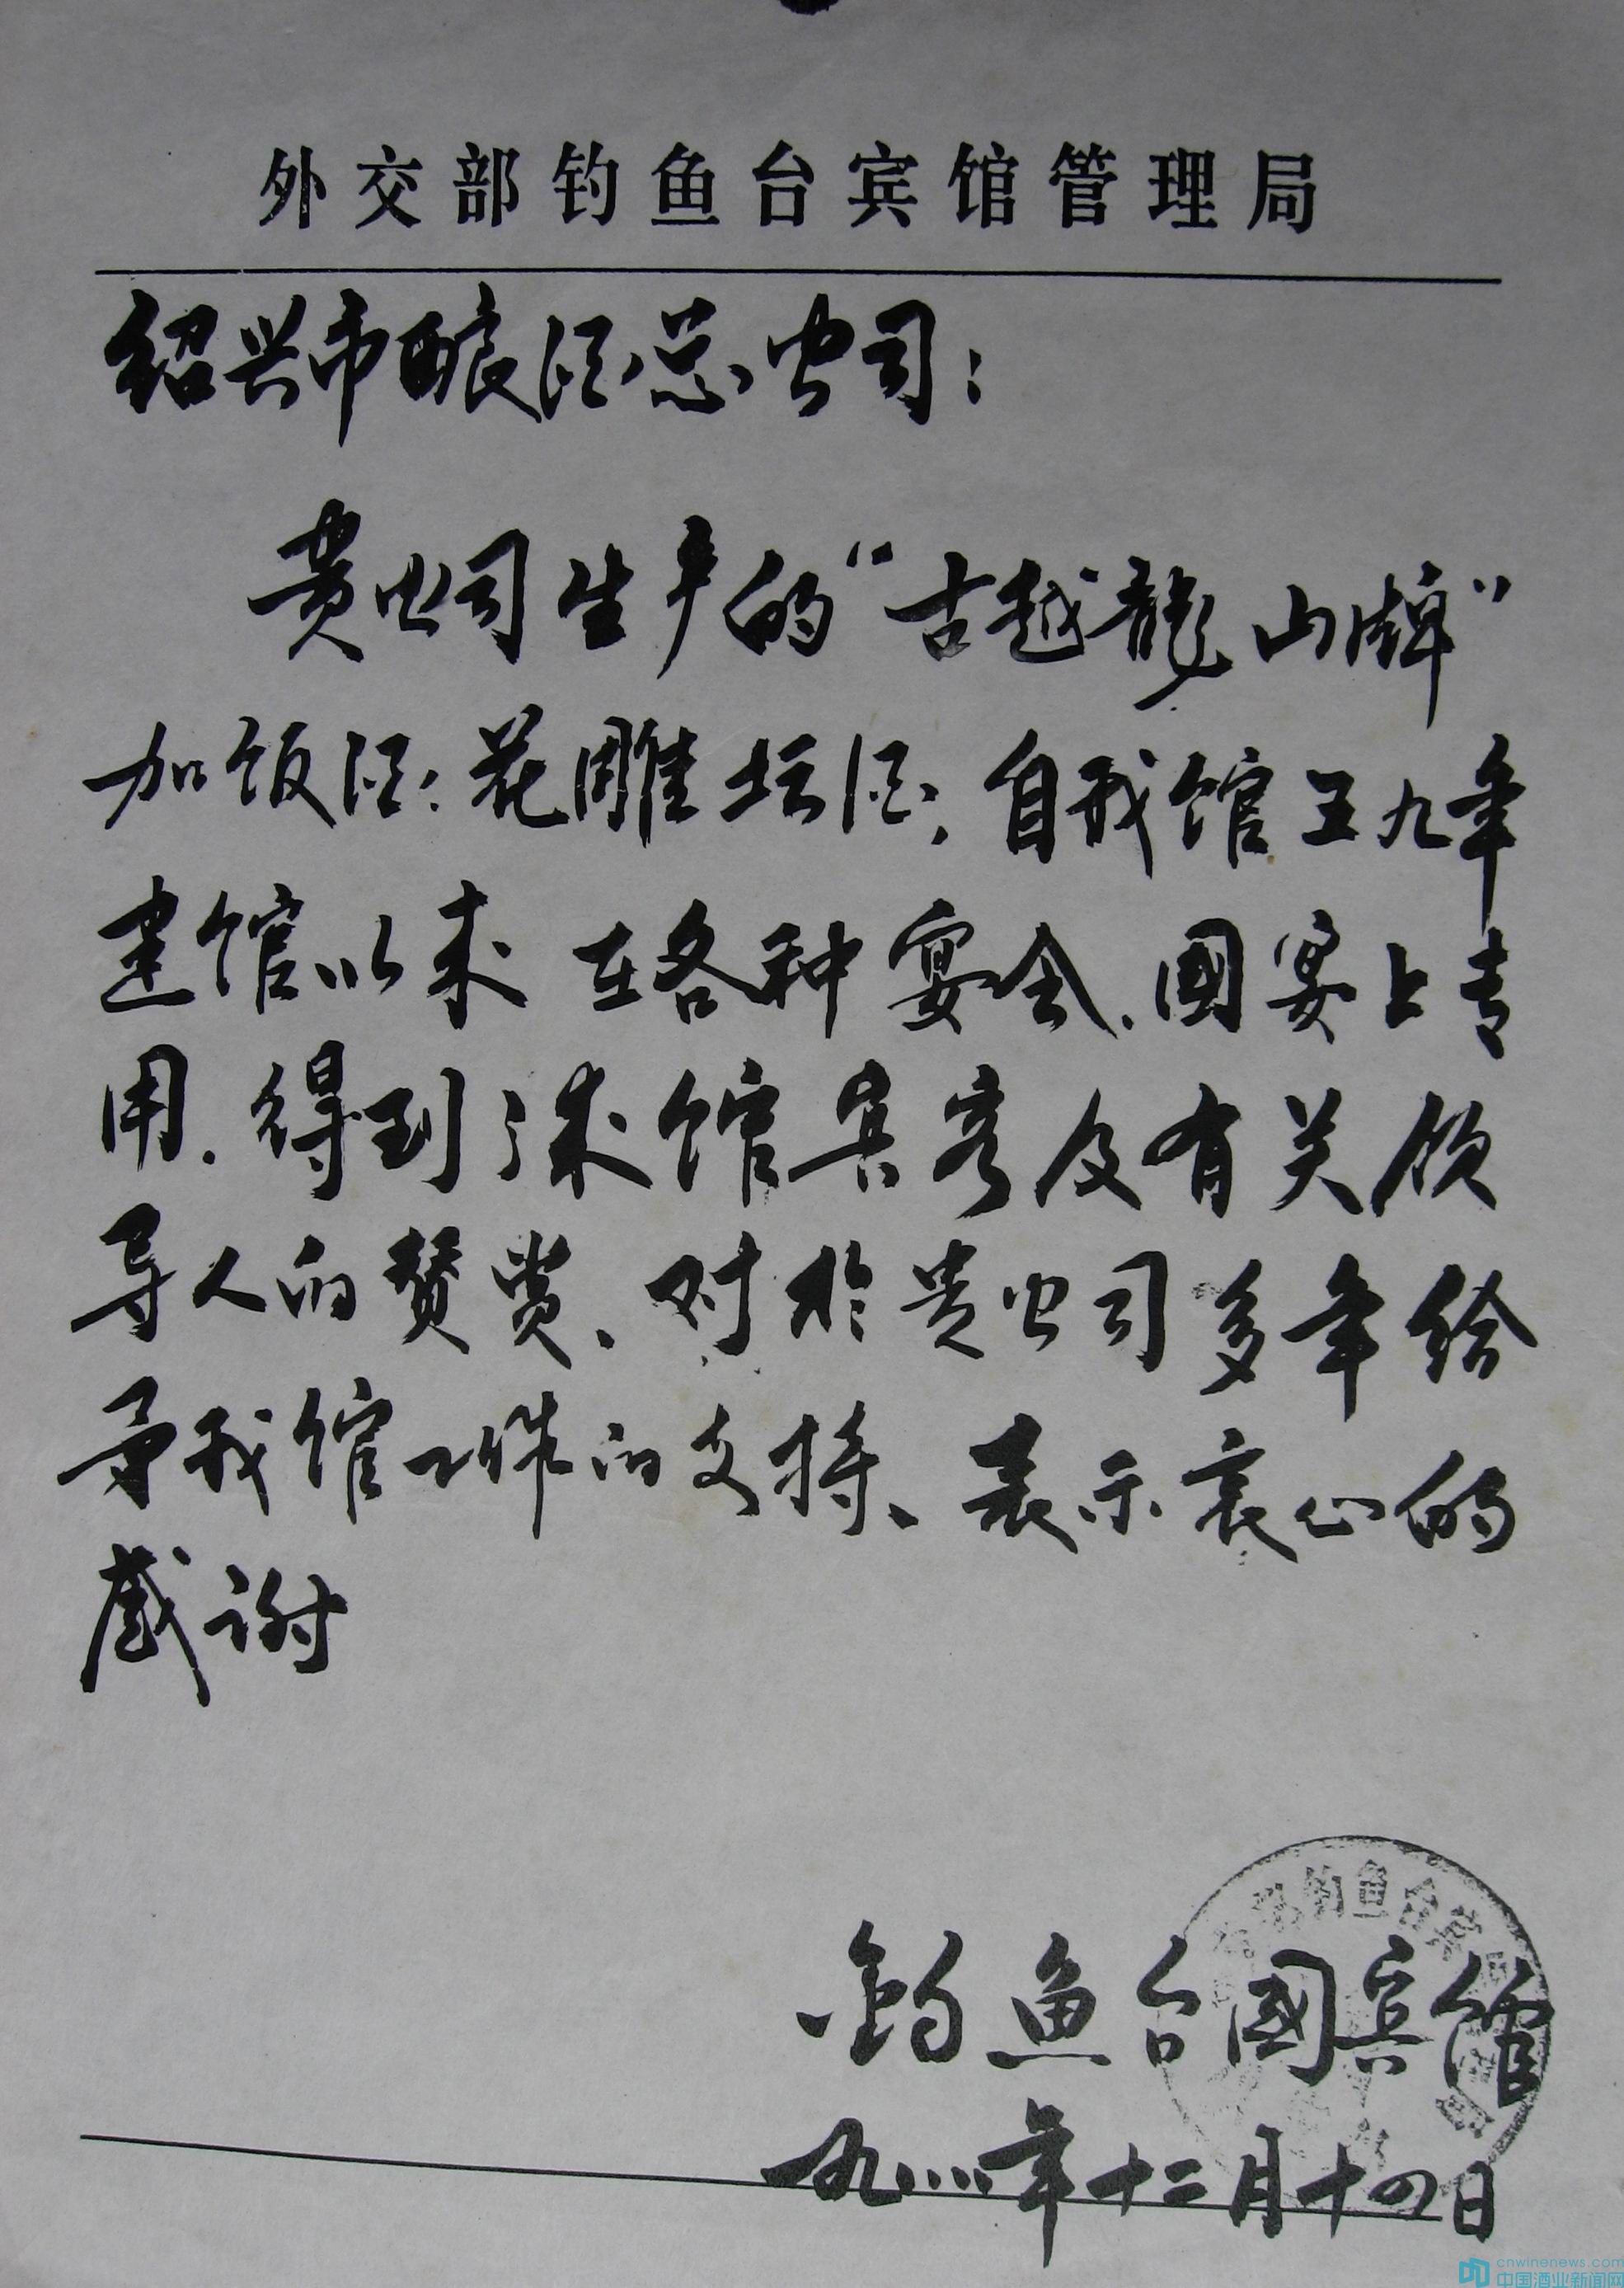 外交部钓鱼台宾馆管理局
绍兴市酿酒总公司：
贵公司生产的“古越龍山牌”
加饭酒：花雕坛酒，自我馆五九年
建馆以来 在各种宴会、國宴上专
用．得到来馆宾客及有关领
导人的赞赏、对於贵公司多年给
予我馆工作的支持、表示衷心的
感谢
钓鱼台國宾馆
年十二月十四日
钓鱼台
cnwinenews.com
中国酒业新闻网